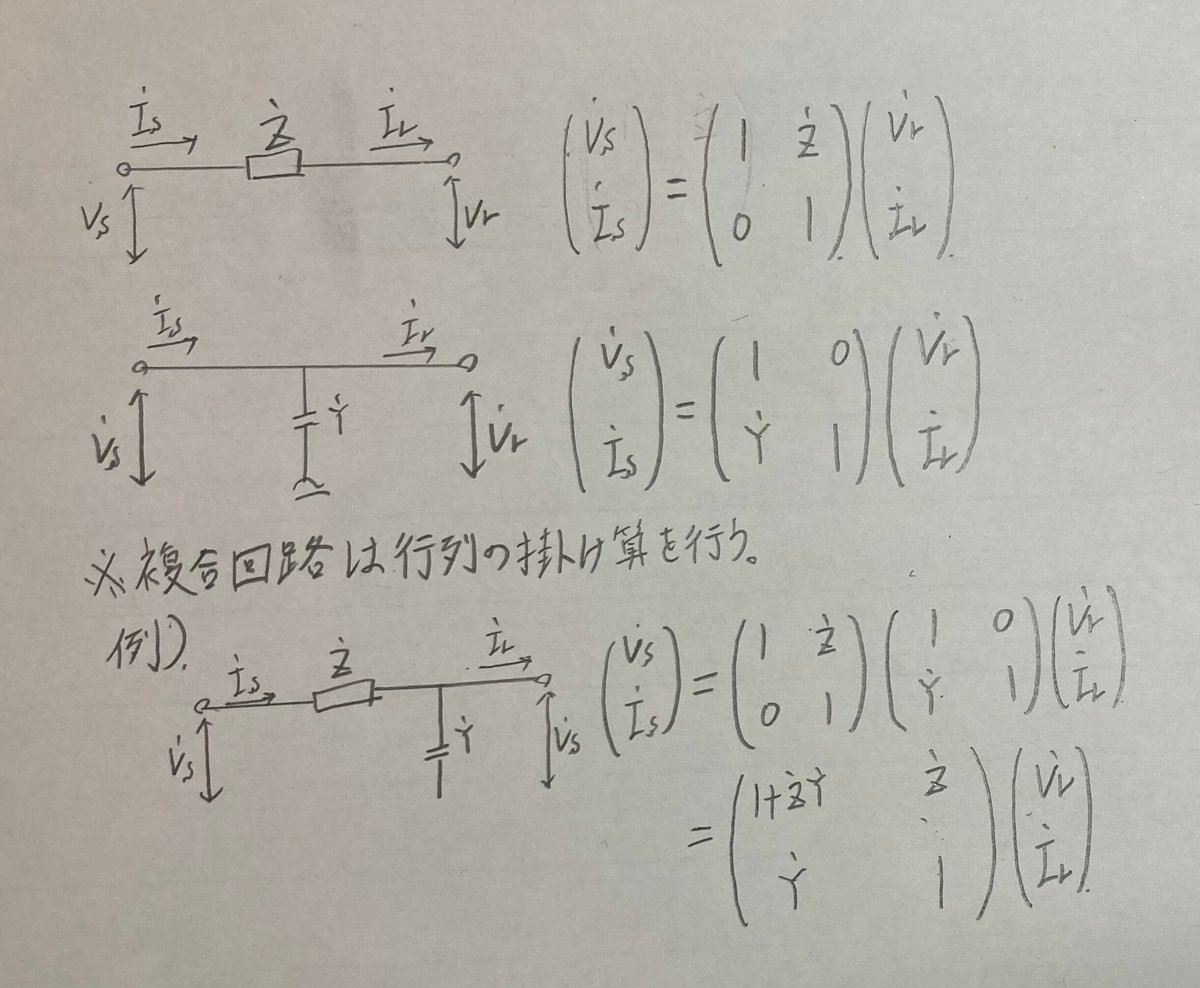 İs Ż İr
Vs Vr
(V̇s İs) = (1 Ż 0 1) (V̇r İr)
İs İr
V̇s Ẏ V̇r
(V̇s İs) = (1 0 Ẏ 1) (V̇r İr)
※複合回路は行列の掛け算を行う。
例)
İs Ż İr
V̇s Ẏ V̇s
(V̇s İs) = (1 Ż 0 1) (1 0 Ẏ 1) (V̇r İr)
= (1+ŻẎ Ż Ẏ 1) (V̇r İr)